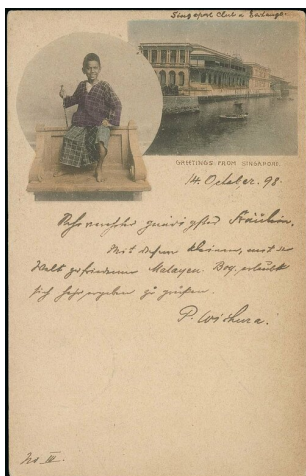 Singapore Club & Exchange.
GREETINGS FROM SINGAPORE.
14. October. 98.
gnädigstes Fräulein,
Mit diesem kleinen, mit der
Welt zufriedenen Malayen Boy, erlaubt
sich zu grüßen
P. Wichura.
No III.